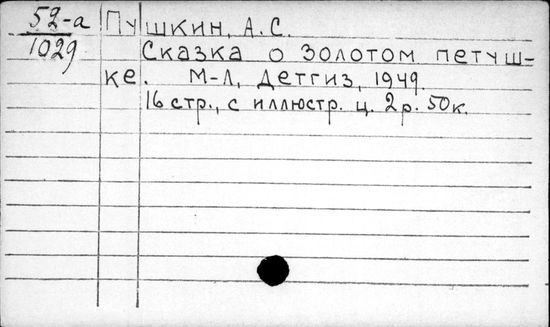 52-а
1029
Пушкин, А.С.
Сказка о золотом петуш-
ке. М-Л, Детгиз, 1949.
16 стр., с иллюстр. ц. 2р. 50к.